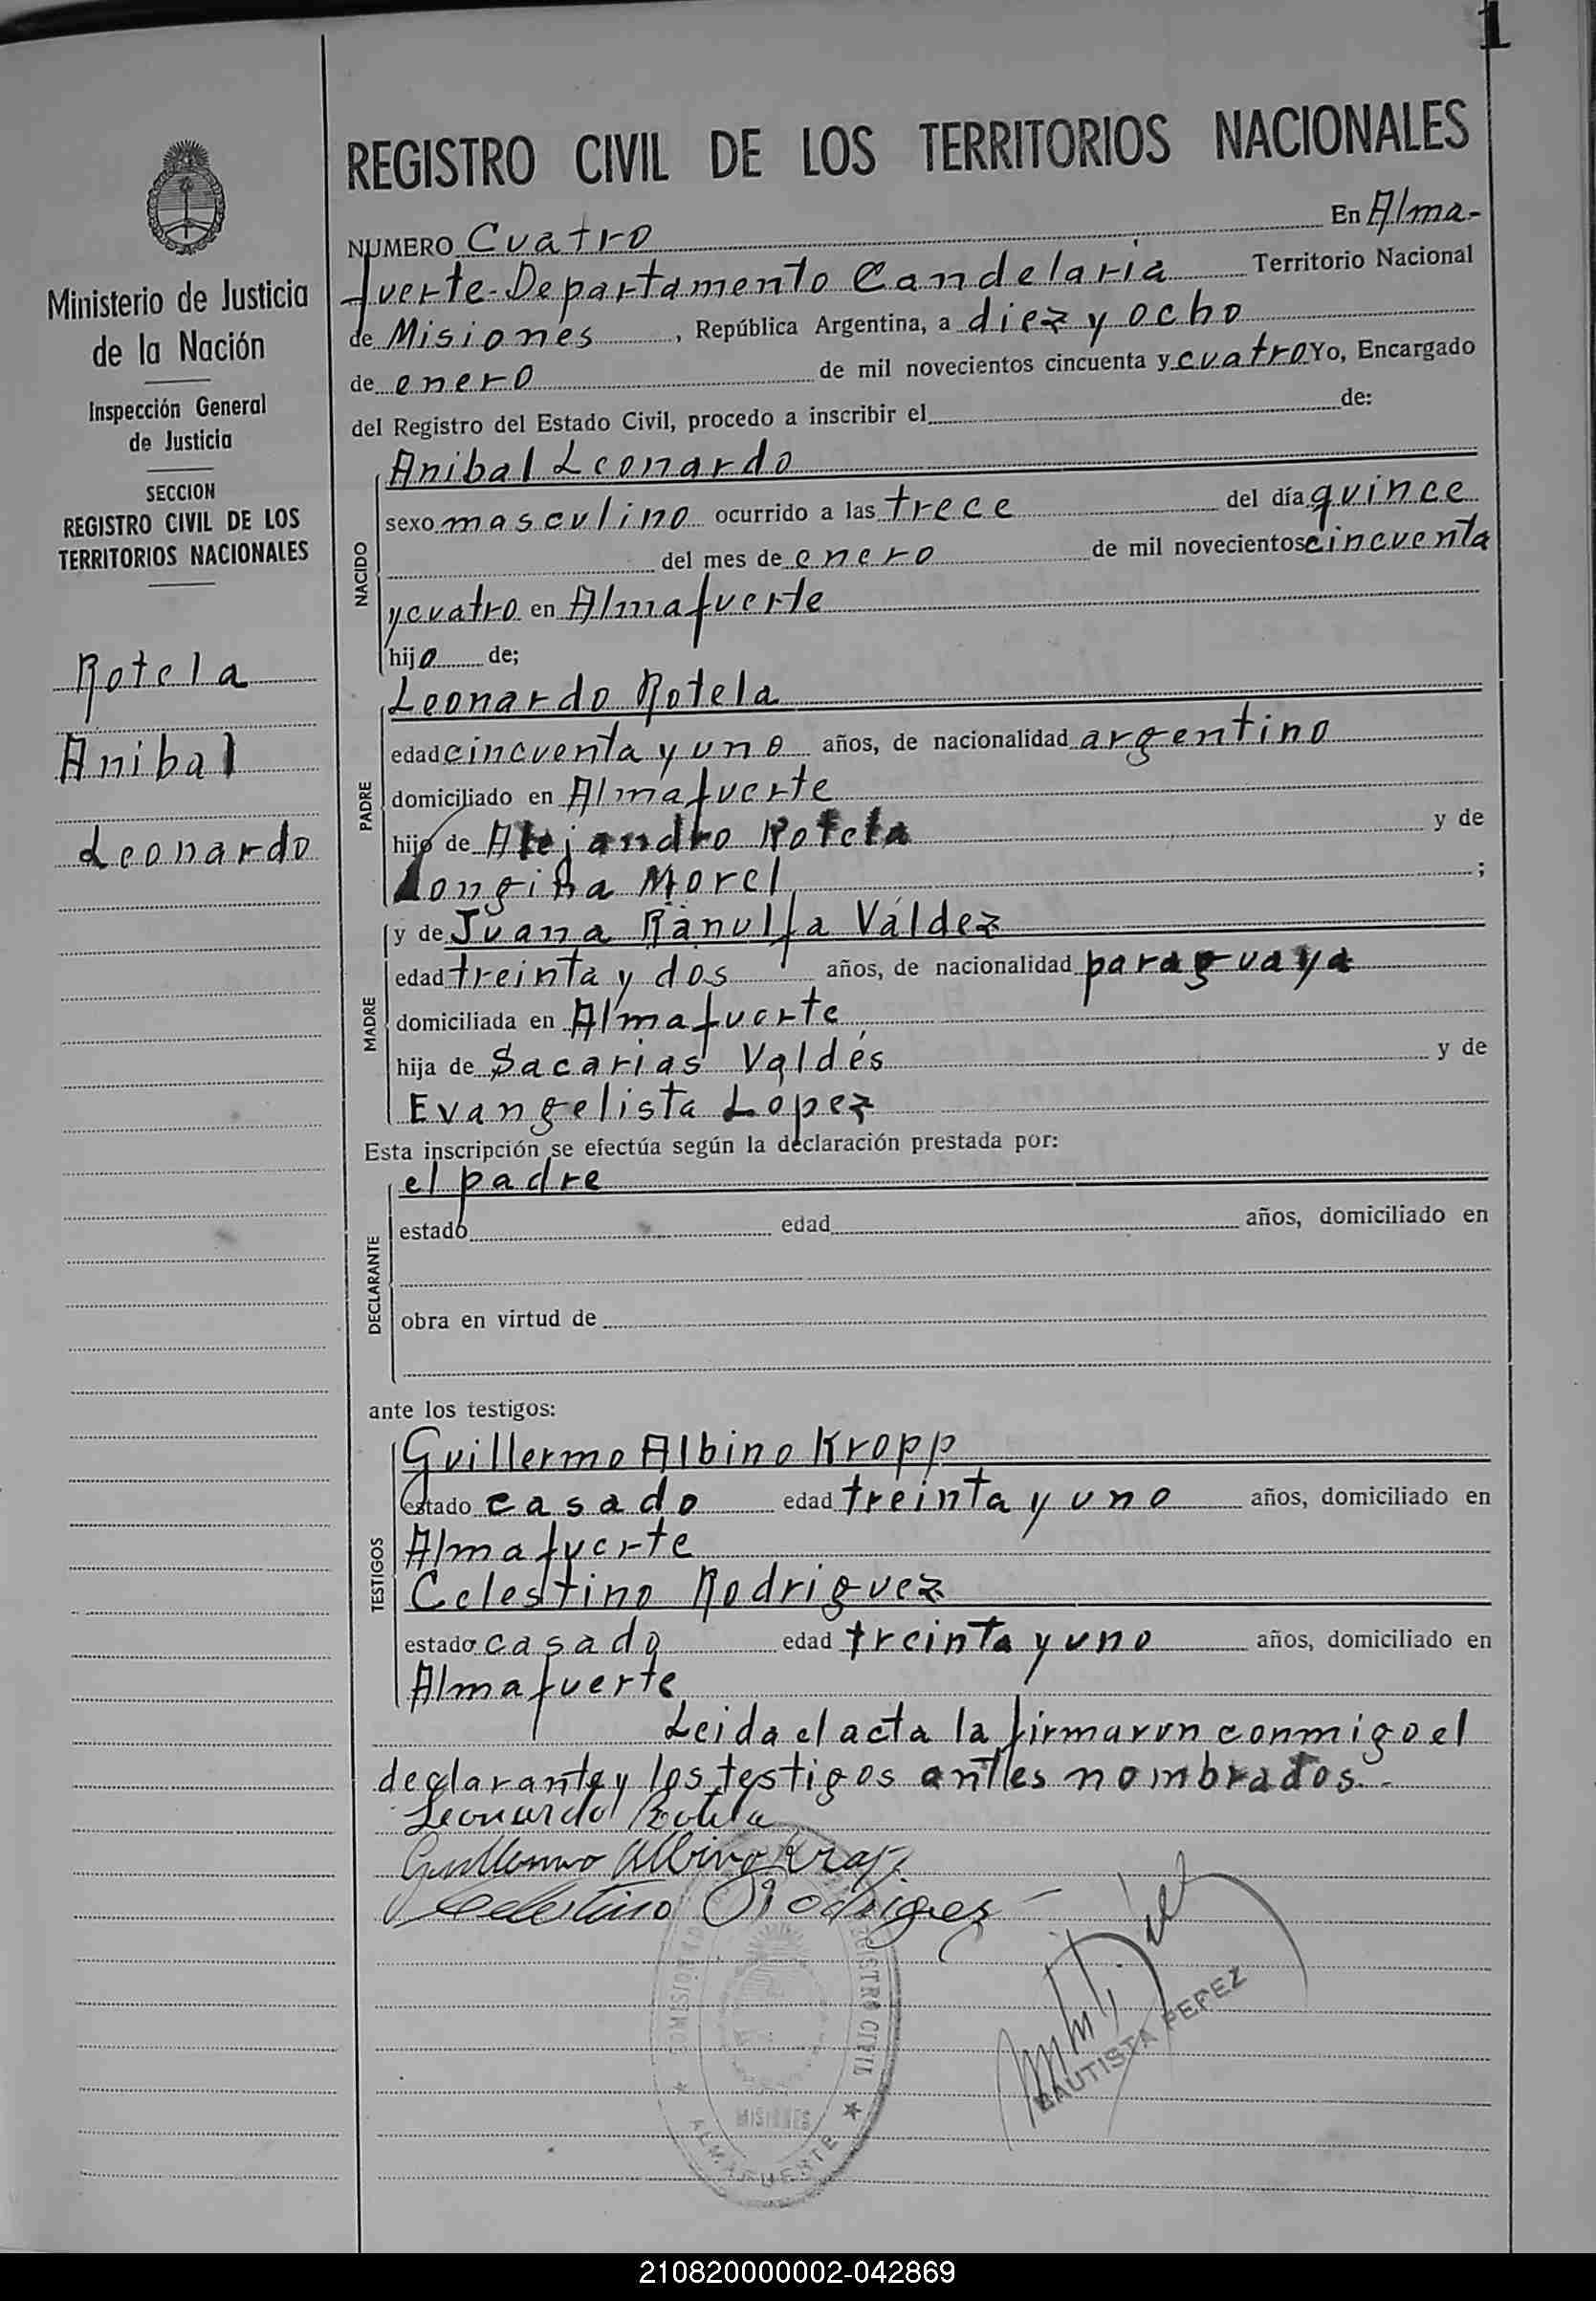 1
Ministerio de Justicia
de la Nación
Inspección General
de Justicia
SECCION
REGISTRO CIVIL DE LOS
TERRITORIOS NACIONALES
Rotela
Anibal
Leonardo
REGISTRO CIVIL DE LOS TERRITORIOS NACIONALES
NUMERO Cuatro En Alma-
fuerte-Departamento Candelaria Territorio Nacional
de Misiones, República Argentina, a diez y ocho
de enero de mil novecientos cincuenta y cuatro Yo, Encargado
del Registro del Estado Civil, procedo a inscribir el de:
NACIDO
Anibal Leonardo
sexo masculino ocurrido a las trece del día quince
del mes de enero de mil novecientos cincuenta
y cuatro en Almafuerte
hijo de;
PADRE
Leonardo Rotela
edad cincuenta y uno años, de nacionalidad argentino
domiciliado en Almafuerte
hijo de Alejandro Rotela y de
Longina Morel ;
MADRE
y de Juana Ranulfa Váldez
edad treinta y dos años, de nacionalidad paraguaya
domiciliada en Almafuerte
hija de Sacarias Valdés y de
Evangelista Lopez
Esta inscripción se efectúa según la declaración prestada por:
DECLARANTE
el padre
estado edad años, domiciliado en
obra en virtud de
ante los testigos:
TESTIGOS
Guillermo Albino Kropp
estado casado edad treinta y uno años, domiciliado en
Almafuerte
Celestino Rodriguez
estado casado edad treinta y uno años, domiciliado en
Almafuerte
Leida el acta la firmaron conmigo el
declarante y los testigos antes nombrados.-
Leonardo Rotela
Guillermo Albino
Celestino Rodriguez
REGISTRO CIVIL
MISIONES
ALMAFUERTE
BAUTISTA PEREZ
210820000002-042869